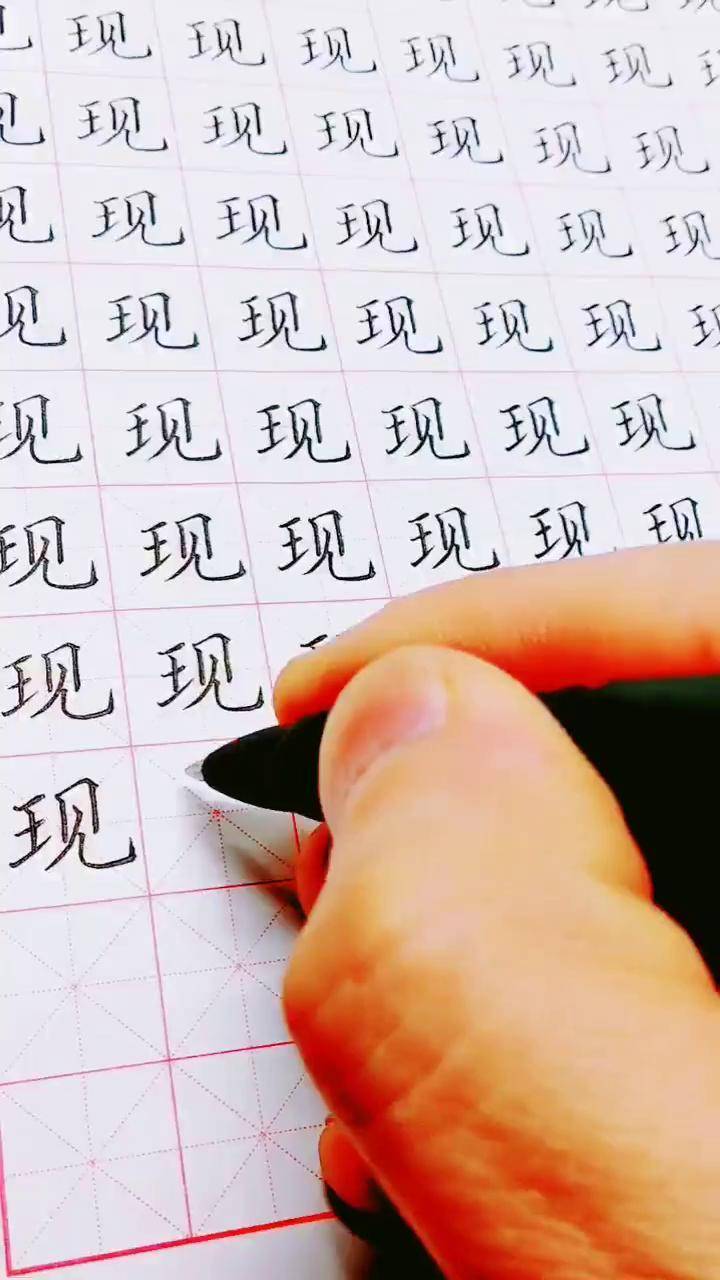 现现现现现现
现现现现现现
现现现现现现
现现现现现
现现现现现现
现现现现现现
现现
现